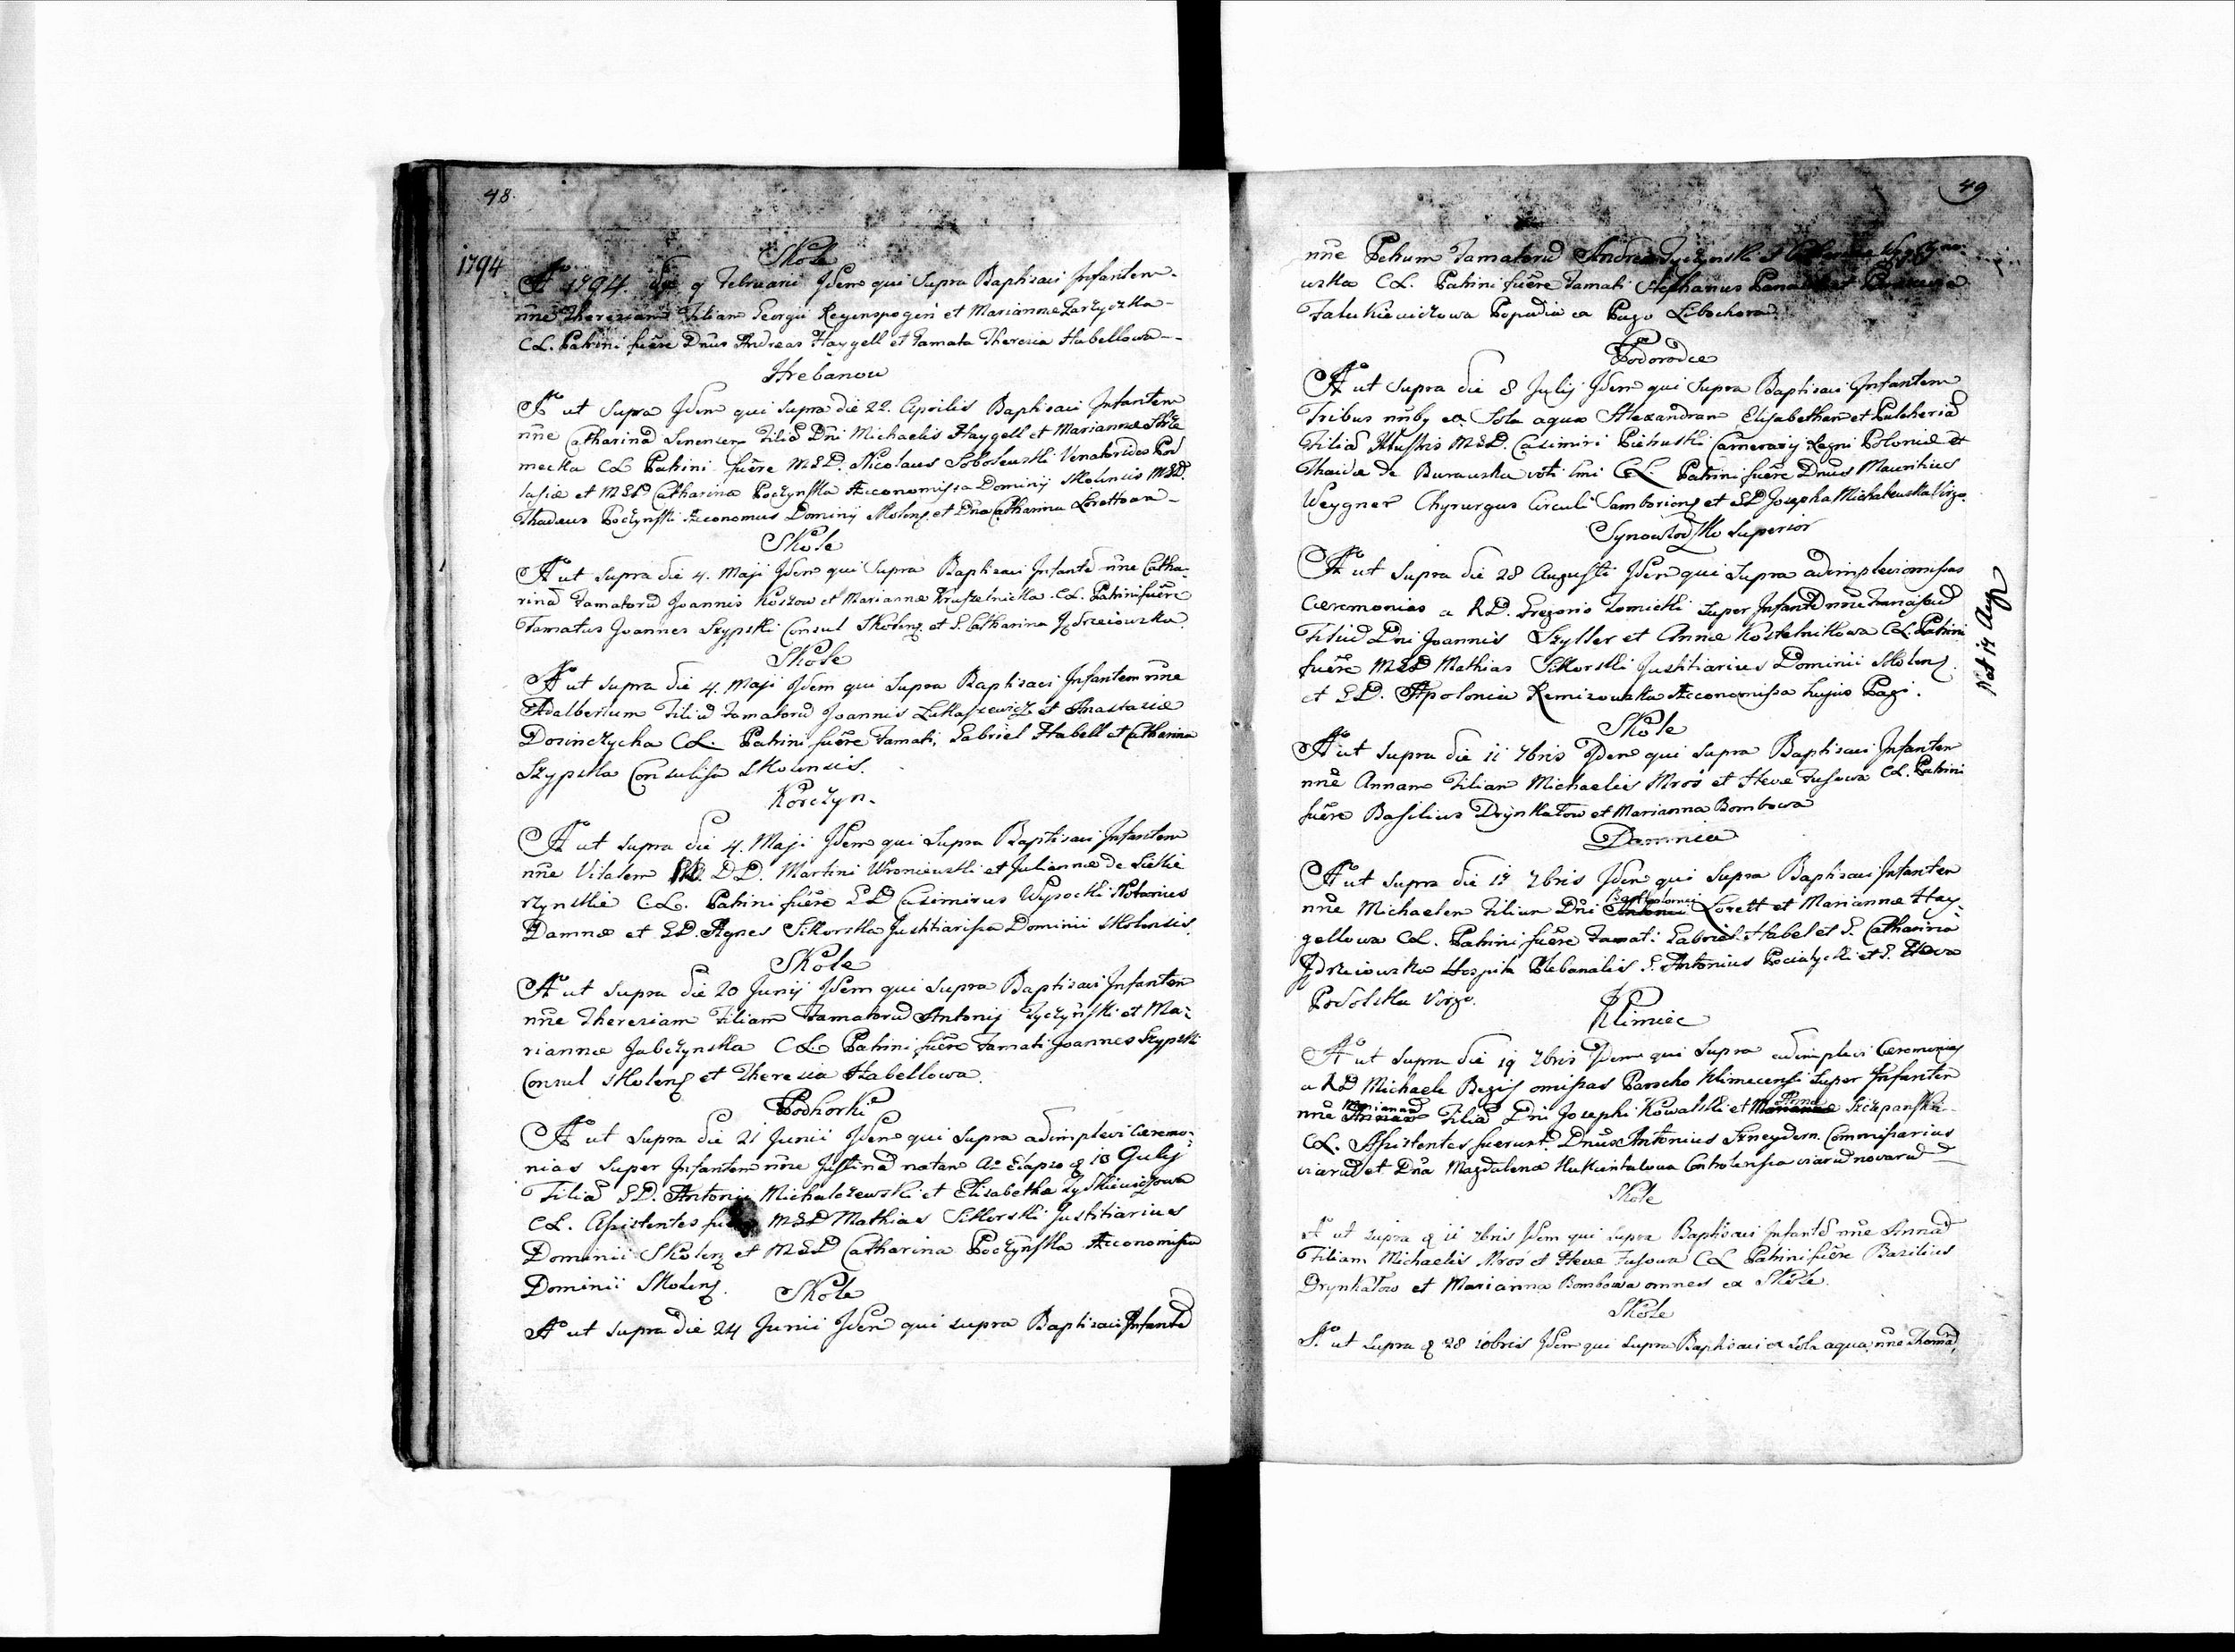 48.
1794
Skole
Ao 1794. die 9 Februarii Jdem qui Supra Baptisavi Infantem
nne Theresiam Filiam Georgii Regenspogen et Mariannæ Zarzyczka
CL. Patrini fuêre Dnus Andreas Haygell et Famata Theresia Habellowa
Hrebanow
Ao ut Supra Jdem qui supra die 22. Aprilis Baptisavi Infantem
nne Catharina Senensem Filia Dni Michaelis Haygell et Mariannæ
mecka CL Patrini fuêre MGD. Nicolaus Soboleuski Venatorides Pod
lasiæ et MGD Catharina Poczynska Æconomissa Dominij Skolensis MGD.
Thadeus Poczynski Æconomus Dominij Skolens et Dna Catharina Lorettowa
Skole
Ao ut supra die 4. Maji Jdem qui Supra Baptisavi Infantē nne Catha-
rinā Famatorū Joannis Koszow et Mariannæ Kruszelnicka CL. Patrini fuêre
Famatus Joannes Szypski Consul Skolens et F. Catharina Jędrzeiowska
Skole
Ao ut supra die 4. Maji Jdem qui supra Baptisavi Infantem nne
Adalbertum Filiū Famatorū Joannis Lukasiewicz et Anastasiæ
Dorinczycha CL. Patrini fuêre Famati, Gabriel Habell et Catharina
Szypska Consulissa Skolensis.
Korczyn.
Ao ut supra die 4. Maji Jdem qui Supra Baptisavi Infantem
nne Vitalem DD. Martini Wroniewski et Juliannæ de Siekie
rzynskie CL. Patrini fuêre GD Casimirus Wysocki Notarius
Damnæ et GD. Agnes Sikorska Justitiarissa Dominii Skolensis.
Skole
Ao ut supra die 20 Junij Jdem qui supra Baptisavi Infantem
nne Theresiam Filiam Famatorū Antonij Tyczynski et Ma-
riannæ Jabczynska CL Patrini fuêre Famati Joannes Szypski
Consul Skolens et Theresia Habellowa.
Podhorki
Ao ut supra die 21 Junii Jdem qui supra adimplevi Ceremo-
nias super Infantem nne Justinā natam Ao elapso d 10 July
Filiā GD. Antonij Michalczewski et Elisabetha
CL. Assistentes MGD Mathias Sikorski Justitiarius
Dominii Skolens et MGD Catharina Poczynska Æconomissa
Dominii Skolens.
Skole
Ao ut supra die 24 Junii Jdem qui supra Baptisavi Infantē
49
nne Petrum Famatorū Andreæ Tyczynski
uska CL. Patrini fuêre Famati Stephanus et
Popadia ex Pago Libochora
Podorodce
Ao ut supra die 8 Julij Jdem qui supra Baptisavi Infantem
Tribus nnibꝫ ex Sola aqua Alexandram Elisabetham et Pulcheriā
Filiā Illustris MGD. Casimiri Pietruski Camerarij Regni Poloniæ et
Thaidæ de Burawska voti imi CL. Patrini fuêre Dnus Mauritius
Weygner Chyrurgus Circuli Samboriens et GD Josepha Michalewska Virgo.
Synowodzko Superior
Ao ut supra die 28 Augusti Jdem qui supra adimplevi omissas
Ceremonias a RD. Gregorio Tomicki super Infantē nne
Filiū Dni Joannis Szyller et Annæ Kostelnikowa CL. Patrini
fuêre MGD Mathias Sikorski Justitiarius Dominii Skolens.
et GD. Apolonia Remizowska Æconomissa hujus Pagi.
Nat 14 Aug
Skole
Ao ut supra die 11 7bris Jdem qui supra Baptisavi Infantem
nne Annam Filiam Michaelis Mros et Hevæ Fusowa CL. Patrini
fuêre Basilius Drynkalow et Marianna Bombowa
Damnia
Ao ut supra die 17 7bris Jdem qui supra Baptisavi Infantem
nne Michaelem Filium Dni Antonii Bartholomei Lorett et Mariannæ Hay-
gellowa CL. Patrini fuêre Famati Gabriel Habel et F. Catharina
Jędrzeiowska Hospita Plebanalis F. Antonius Pociatycki et F. Heva
Podolska Virgo.
Klimiec
Ao ut supra die 19 7bris Jdem qui supra adimplevi Ceremonias
a RD Michaele omissas Parocho Klimecensi super Infantem
nne Mariannā Filiā Dni Josephi Kowalski et Mariannæ Anna Szczepanska
CL. Assistentes fuerunt Dnus Antonius Szneydern Commissarius
viarū et Dna Magdalena Kukuntalowa Controlensia viarū novarū
Skole
Ao ut supra d 11 7bris Jdem qui supra Baptisavi Infantē nne Annā
Filiam Michaelis Mros et Hevæ Fusowa CL Patrini fuêre Basilius
Drynkalow et Marianna Bombowa omnes ex Skole.
Skole
Ao ut supra d 28 10bris Jdem qui supra Baptisavi ex sola aqua nne Thomā,